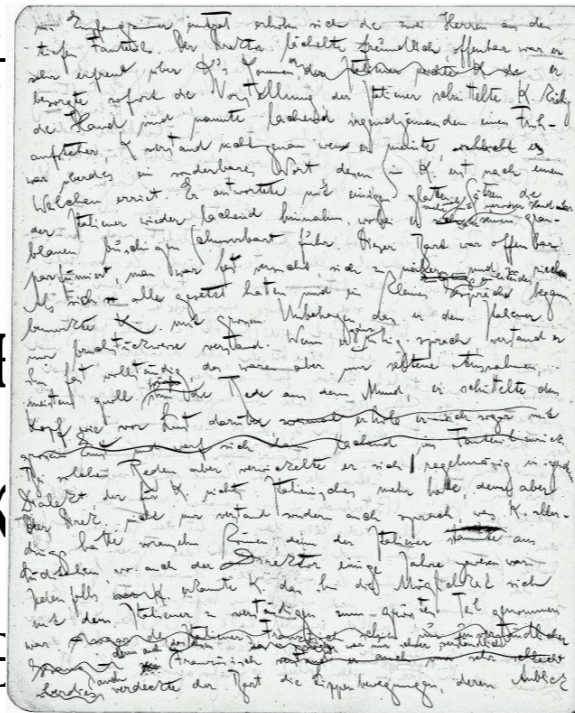 im Empfangszimmer eintrat erhoben sich die zwei Herren aus den
tiefen Fauteuils. Der Direktor lächelte freundlich offenbar war er
sehr erfreut über K's Kommen er
besorgte sofort die Vorstellung der Italiener schüttelte K. kräftig
die Hand und nannte lachend irgendjemanden einen Früh-
aufsteher, K. verstand nicht genau wen er meinte, es
war überdies ein sonderbares Wort dessen Sinn K. erst nach einem
Weilchen erriet. Er antwortete mit einigen glatten Sätzen die
der Italiener wieder lachend hinnahm, wobei er seinen grau-
blauen buschigen Schnurrbart fuhr Dieser Bart war offenbar
parfümiert, man war fast versucht, sich zu nähern und zu riechen
Als sich alle gesetzt hatten und ein kleines Gespräch begann
bemerkte K. mit grossem Unbehagen dass er den Italiener
nur bruchstückweise verstand. Wenn er ganz ruhig sprach verstand er
ihn fast vollständig das waren aber nur seltene Ausnahmen,
meistens quoll ihm die Rede aus dem Mund, er schüttelte den
Kopf wie vor Lust darüber
lachend im Fauteuil zurück
Bei solchen Reden aber verwickelte er sich regelmässig in irgend
Dialekt der für K. nichts Italienisches mehr hatte, den aber
der Direk. nicht nur verstand sondern auch sprach, was K. aller-
dings hatte denn der Italiener stammte aus
Süditalien, wo auch der Direktor einige Jahre gewesen war.
Jedenfalls erkannte K. dass ihm die Möglichkeit sich
mit dem Italiener zu verständigen zum grössten Teil genommen
war denn auch dessen Französisch war nur schwer verständlich
auch verdeckte der Bart die Lippenbewegungen, deren Anblick